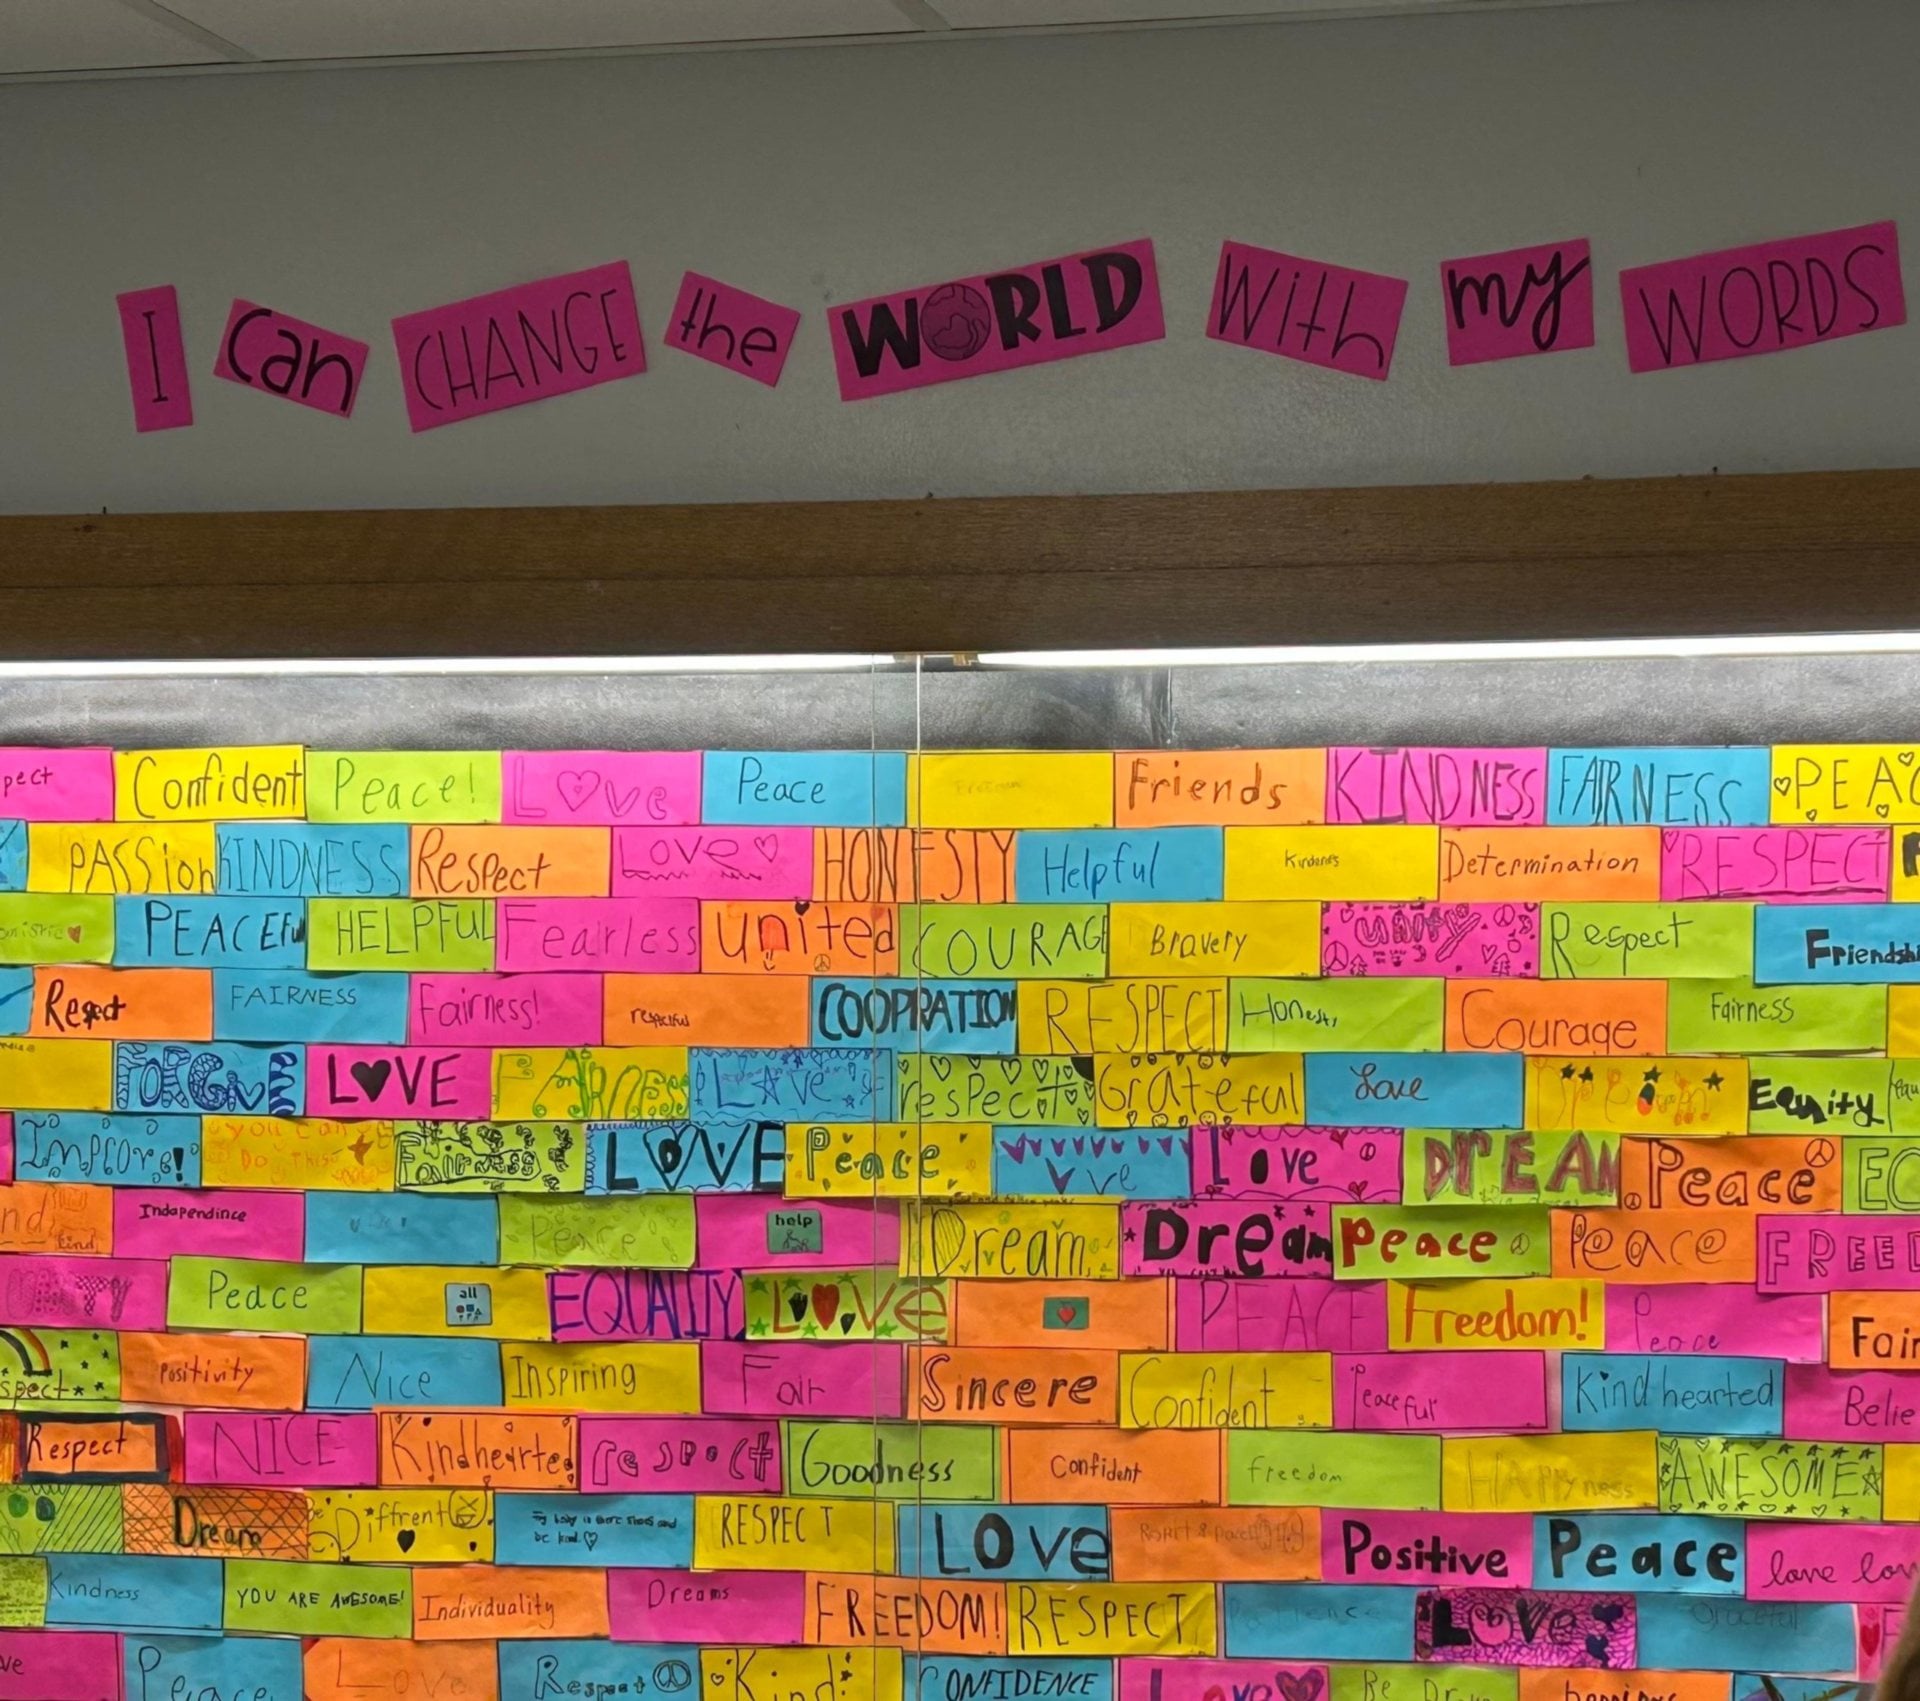 I can CHANGE the WORLD with my WORDS
pect Confident Peace! Love Peace Freedom Friends KINDNESS FAIRNESS PEAC
PASSion KINDNESS Respect Love HONESTY Helpful Kindness Determination RESPECT
PEACEFul HELPFUL Fearless united COURAGE Bravery unity Respect Friendshi
Respct FAIRNESS Fairness! respectful COOPRATION RESPECT Honesty Courage Fairness
FORGIVE LOVE FAIRNESS LOVE respect Grateful Love Equity
Improve! you can Do This Fairness LOVE Peace Love Love DrEAM Peace EQ
nd kind Independince Peace! help Dream Dream Peace Peace FREED
UNITY Peace all EQUALITY LOVE PEACE Freedom! Peace Fair
spect Positivity Nice Inspiring Fair Sincere Confident Peaceful Kind hearted Belie
Respect NICE Kindhearted respect Goodness Confident freedom HAPPyness AWESOME
Dream Diffrent RESPECT Love Positive Peace love lov
Kindness YOU ARE AWESOME! Individuality Dreams FREEDOM! RESPECT Patience Love Graceful
ve Peace Love Respect Kind CONFIDENCE Love Be Brave happiness